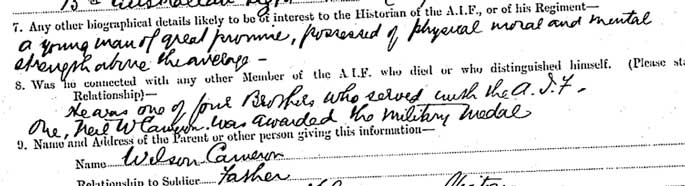 7. Any other biographical details likely to be of interest to the Historian of the A.I.F., or of his Regiment—
a young man of great promise, possessed of physical moral and mental
strength above the average —
8. Was he connected with any other Member of the A.I.F. who died or who distinguished himself. (Please sta
Relationship)—
He was one of four Brothers who served with the A.I.F.
One, Neil W Cameron. was awarded the military medal
9. Name and Address of the Parent or other person giving this information—
Name Wilson Cameron
Relationship to Soldier Father